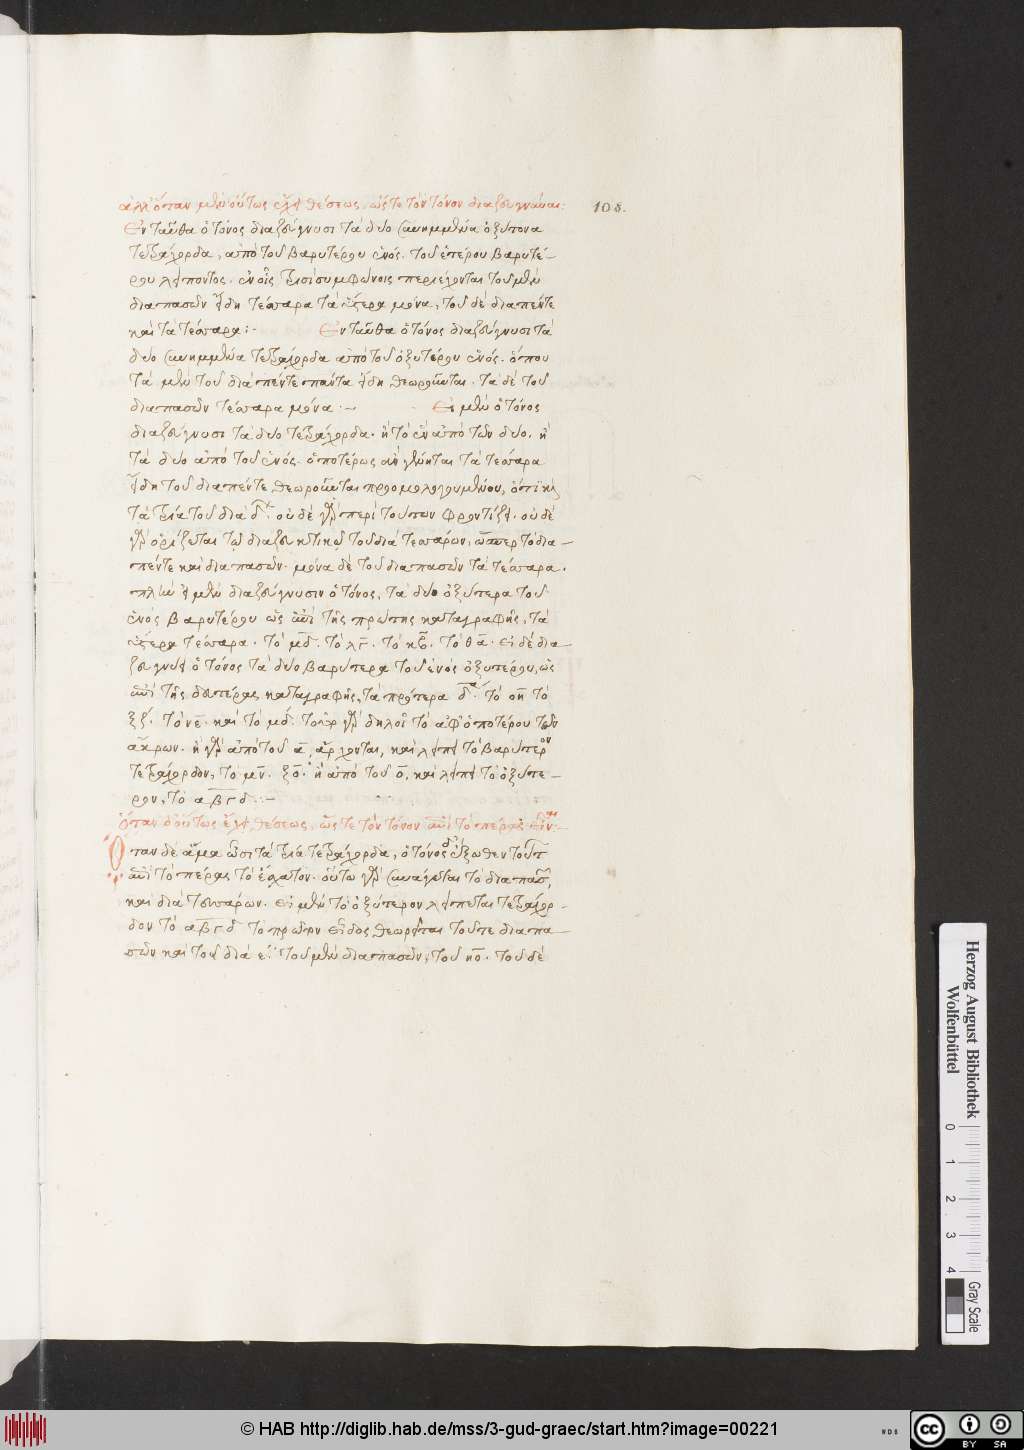 ἀλλ' ὅταν μὲν οὕτως ἔχῃ θέσεως, ὥστε τὸν τόνον διαζευγνύναι: 108.
Ἐνταῦθα ὁ τόνος διαζεύγνυσι τὰ δύο συνημμένα ὀξύτονα
τετράχορδα, ἀπὸ τοῦ βαρυτέρου ἑνός. τοῦ ἑτέρου βαρυτέ-
ρου λείποντος. ἐν οἷς τρισὶ συμφώνοις περιέχονται τοῦ μὲν
διαπασῶν εἴδη τέσσαρα τὰ ὕστερα μόνα, τοῦ δὲ διαπέντε
καὶ τὰ τέσσαρα:- Ἐνταῦθα ὁ τόνος διαζεύγνυσι τὰ
δύο συνημμένα τετράχορδα ἀπὸ τοῦ ὀξυτέρου ἑνός. ὅπου
τὰ μὲν τοῦ διαπέντε πάντα εἴδη θεωροῦνται. τὰ δὲ τοῦ
διαπασῶν τέσσαρα μόνα:- Εἰ μὲν ὁ τόνος
διαζεύγνυσι τὰ δύο τετράχορδα. ἢ τὸ ἓν ἀπὸ τῶν δύο. ἢ
τὰ δύο ἀπὸ τοῦ ἑνός. ὁποτέρως ἂν γένηται τὰ τέσσαρα
εἴδη τοῦ διαπέντε θεωροῦνται προομολογουμένου, ὅτι καὶ
τὰ τρία τοῦ διὰ δ. οὐδὲ γὰρ περὶ τούτων φροντίζει. οὐδὲ
γὰρ ὁρίζεται τῷ διαζευκτικῷ τοῦ διὰ τεσσάρων, ὥσπερ τὸ δια-
πέντε καὶ διαπασῶν. μόνα δὲ τοῦ διαπασῶν τὰ τέσσαρα.
πλὴν εἰ μὲν διαζεύγνυσιν ὁ τόνος, τὰ δύο ὀξύτερα τοῦ
ἑνὸς βαρυτέρου ὡς ἐπὶ τῆς πρώτης καταγραφῆς, τὰ
ὕστερα τέσσαρα. τὸ μδ. τὸ λγ. τὸ κβ. τὸ θα. εἰ δὲ δια-
ζεύγνυσι ὁ τόνος τὰ δύο βαρύτερα τοῦ ἑνὸς ὀξυτέρου, ὡς
ἐπὶ τῆς δευτέρας καταγραφῆς, τὰ πρότερα δ. τὸ οη τὸ
ξζ. τὸ νε. καὶ τὸ μδ. τοῦτο γὰρ δηλοῖ τὸ ἀφ' ὁποτέρου τῶν
ἄκρων. ἢ γὰρ ἀπὸ τοῦ α, ἄρχονται, καὶ λείπει τὸ βαρύτερον
τετράχορδον, τὸ μν. ξο. ἢ ἀπὸ τοῦ ο, καὶ λείπει τὸ ὀξύτε-
ρον, τὸ αβγδ:-
Ὅταν δ' οὕτως ἔχῃ θέσεως, ὥστε τὸν τόνον ἐπὶ τὸ πέρας εἶναι:-
Ὅταν δὲ ἅμα ὦσι τὰ τρία τετράχορδα, ὁ τόνος δὲ ἔξωθεν τούτων
ἐπὶ τὸ πέρας τὸ ἔσχατον. οὕτω γὰρ συνάγεται τὸ διαπασῶν,
καὶ διὰ τεσσάρων. εἰ μὲν τὸ ὀξύτερον λείπεται τετράχορ-
δον τὸ αβγδ τὸ πρῶτον εἶδος θεωρεῖται τοῦ τε διαπα-
σῶν καὶ τοῦ διὰ ε. τοῦ μὲν διαπασῶν, τοῦ κο. τοῦ δὲ
Herzog August Bibliothek
Wolfenbüttel
0 1 2 3 4
Gray Scale
© HAB http://diglib.hab.de/mss/3-gud-graec/start.htm?image=00221
WDB
cc BY SA